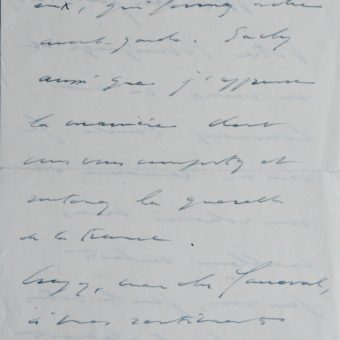 eux, qui
avant-garde. Sachez
aussi que j'approuve
la manière dont
vous vous comportez et
soutenez la querelle
de la France
Croyez, mon cher
à mes sentiments